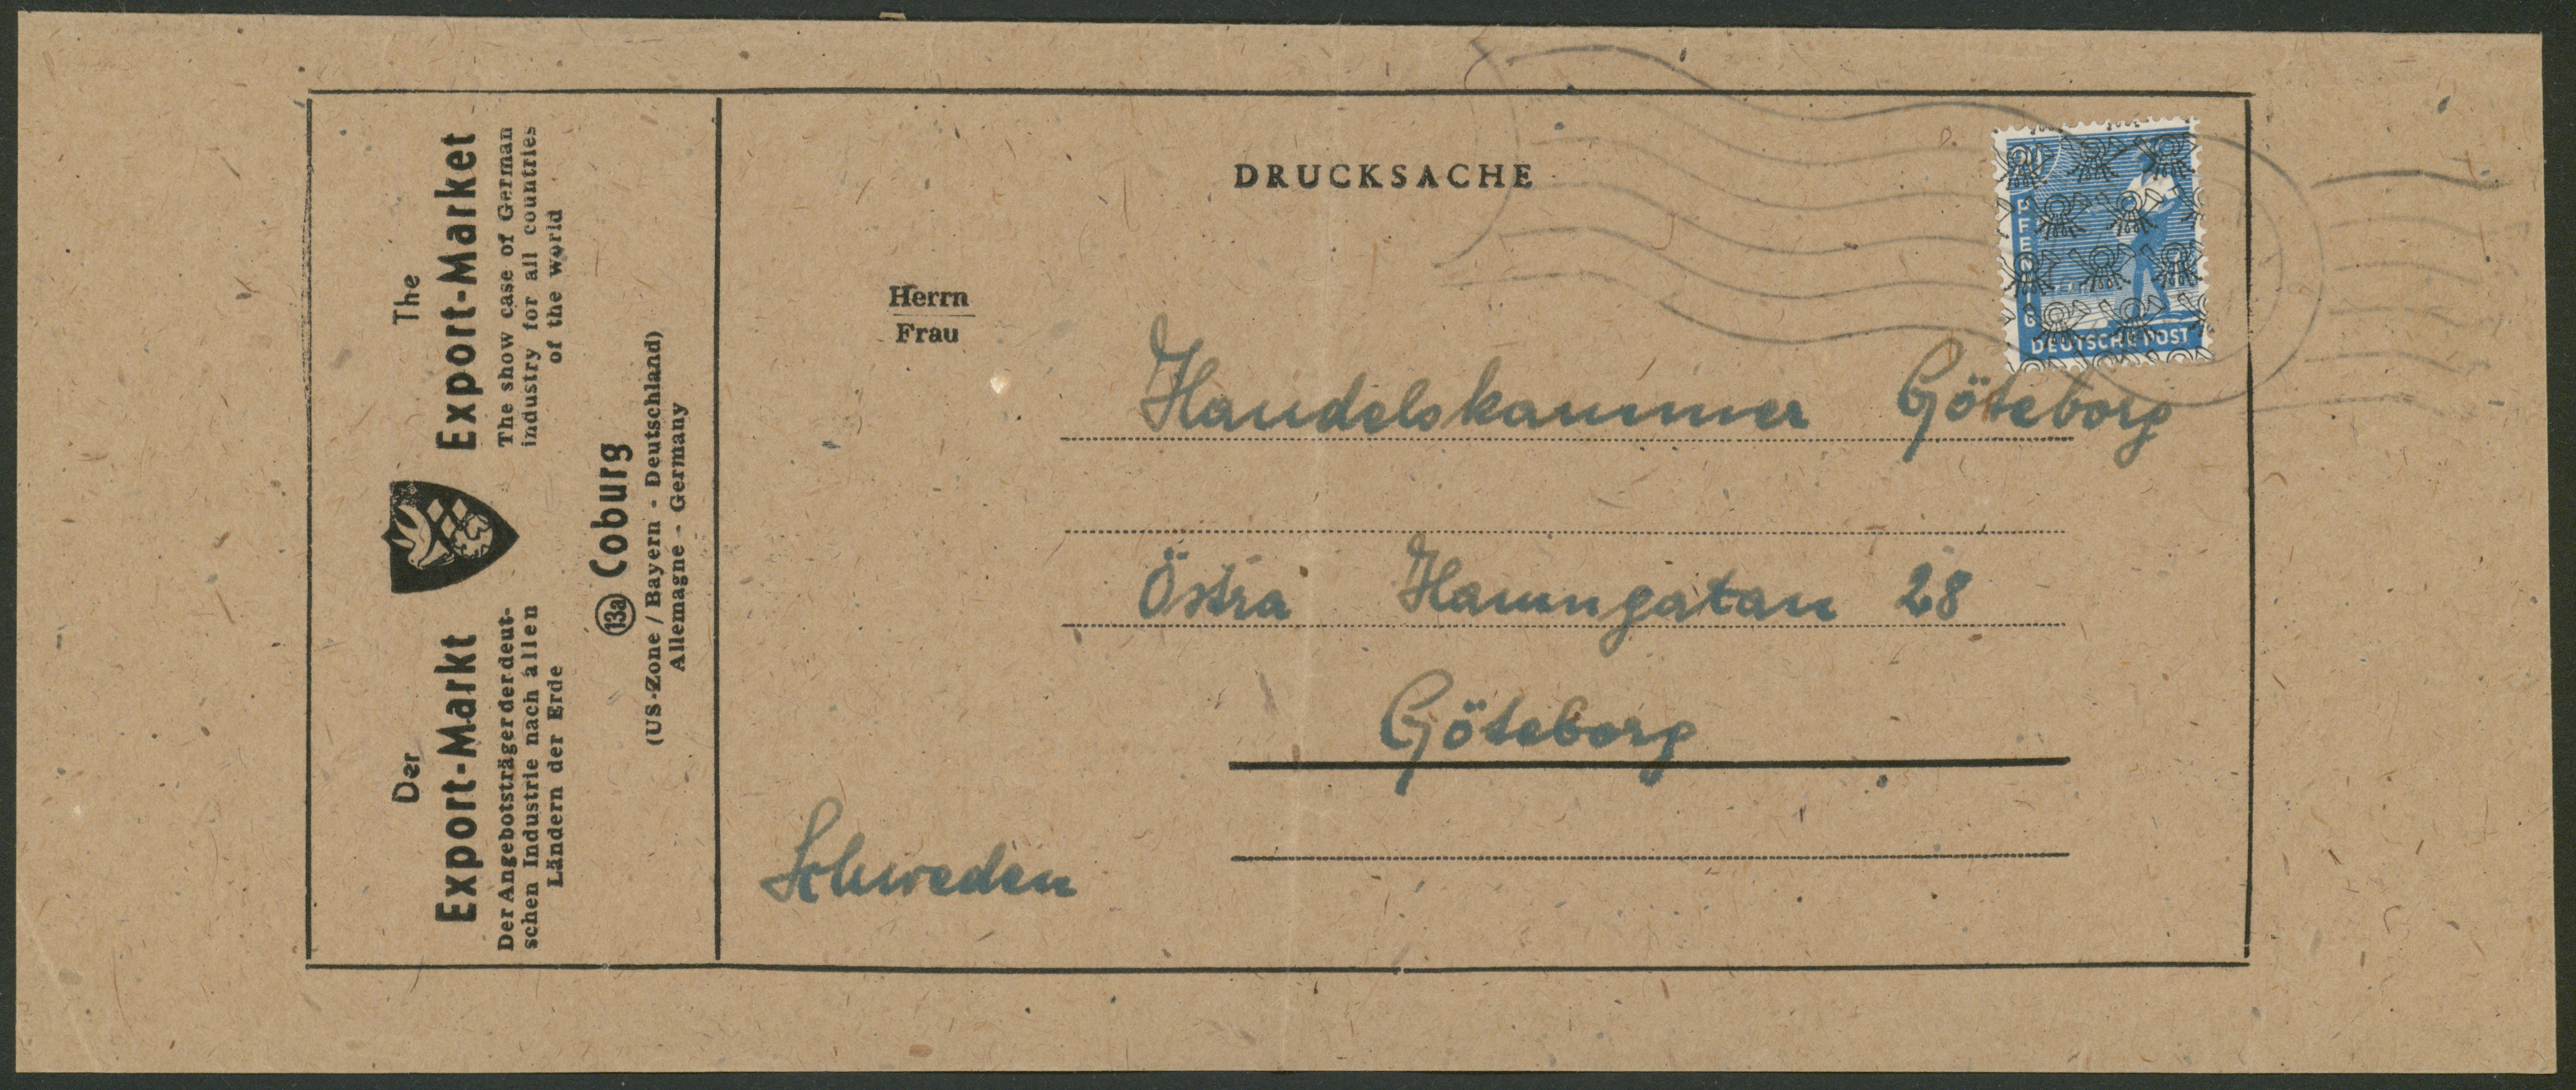 Der
Export-Markt
Der Angebotsträger der deut-
schen Industrie nach allen
Ländern der Erde
The
Export-Market
The show case of German
industry for all countries
of the world
13a Coburg
(US-Zone / Bayern - Deutschland)
Allemagne - Germany
DRUCKSACHE
Herrn
Frau
Handelskammer Göteborg
Östra Hamngatan 28
Göteborg
Schweden
20
PFENNIG
DEUTSCHE POST